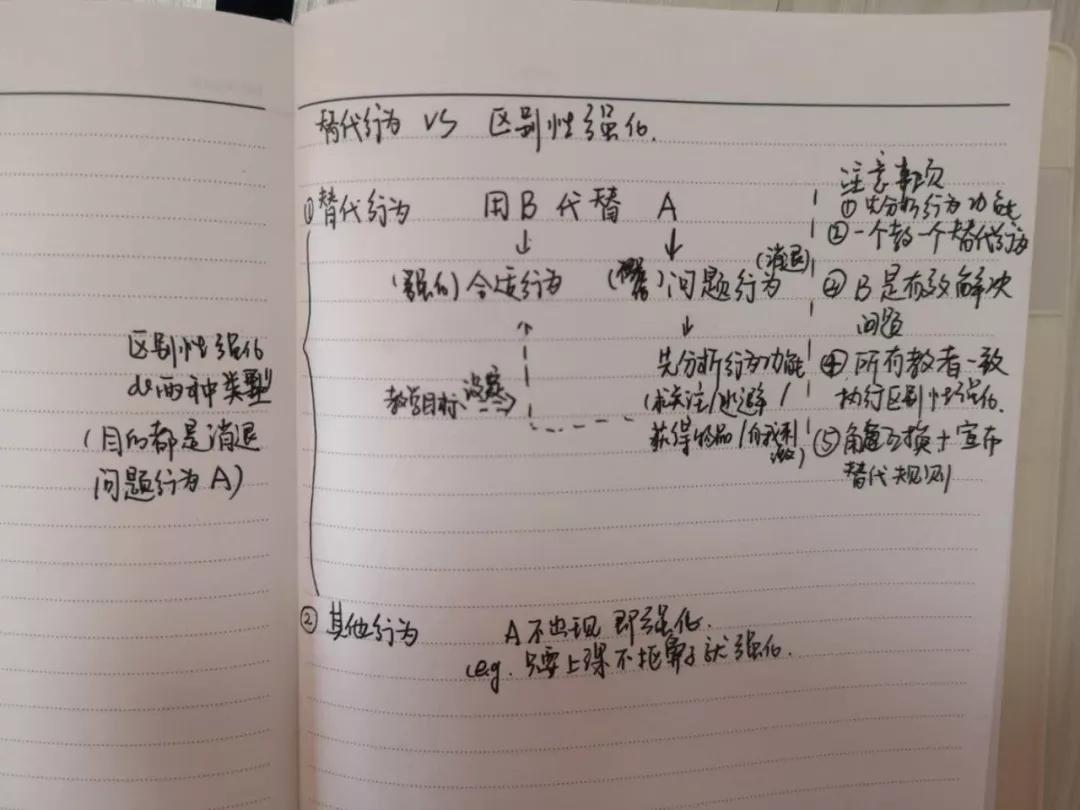 替代行为 VS 区别性强化.
区别性强化
de两种类型
(目的都是消退
问题行为 A)
①替代行为 用B代替 A
↓ ↓
(强化)合适行为 问题行为 (消退)
↓
先分析行为功能
教学目标 (求关注/逃避/
获得物品/自我刺激)
注意事项
①先分析行为功能
②一个教一个替代行为
B是有效解决
问题
④所有教者一致
执行区别性强化.
⑤角色互换+宣布
替代规则
②其他行为 A不出现即强化.
e.g. 只要上课不抠鼻子就强化.